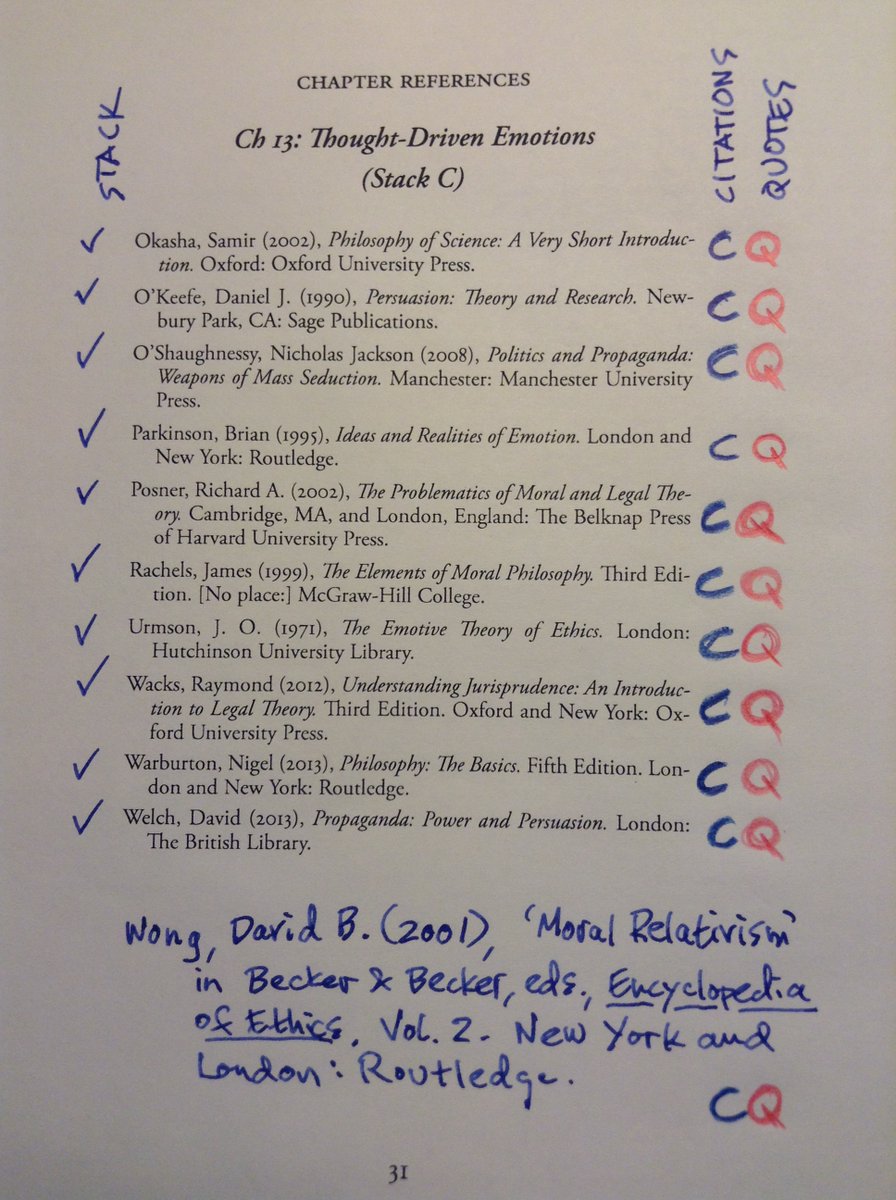 CHAPTER REFERENCES
STACK
CITATIONS
QUOTES
Ch 13: Thought-Driven Emotions
(Stack C)
✓ Okasha, Samir (2002), Philosophy of Science: A Very Short Introduc- C Q
tion. Oxford: Oxford University Press.
✓ O'Keefe, Daniel J. (1990), Persuasion: Theory and Research. New- C Q
bury Park, CA: Sage Publications.
✓ O'Shaughnessy, Nicholas Jackson (2008), Politics and Propaganda: C Q
Weapons of Mass Seduction. Manchester: Manchester University
Press.
✓ Parkinson, Brian (1995), Ideas and Realities of Emotion. London and C Q
New York: Routledge.
✓ Posner, Richard A. (2002), The Problematics of Moral and Legal The-
ory. Cambridge, MA, and London, England: The Belknap Press C Q
of Harvard University Press.
✓ Rachels, James (1999), The Elements of Moral Philosophy. Third Edi- C Q
tion. [No place:] McGraw-Hill College.
✓ Urmson, J. O. (1971), The Emotive Theory of Ethics. London: C Q
Hutchinson University Library.
✓ Wacks, Raymond (2012), Understanding Jurisprudence: An Introduc-
tion to Legal Theory. Third Edition. Oxford and New York: Ox- C Q
ford University Press.
✓ Warburton, Nigel (2013), Philosophy: The Basics. Fifth Edition. Lon- C Q
don and New York: Routledge.
✓ Welch, David (2013), Propaganda: Power and Persuasion. London: C Q
The British Library.
Wong, David B. (2001), 'Moral Relativism'
in Becker & Becker, eds., Encyclopedia
of Ethics, Vol. 2. New York and
London: Routledge.
C Q
31